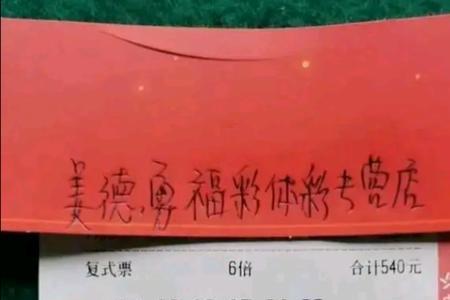 姜德勇福彩体彩专营店
复式票 6倍 合计540元